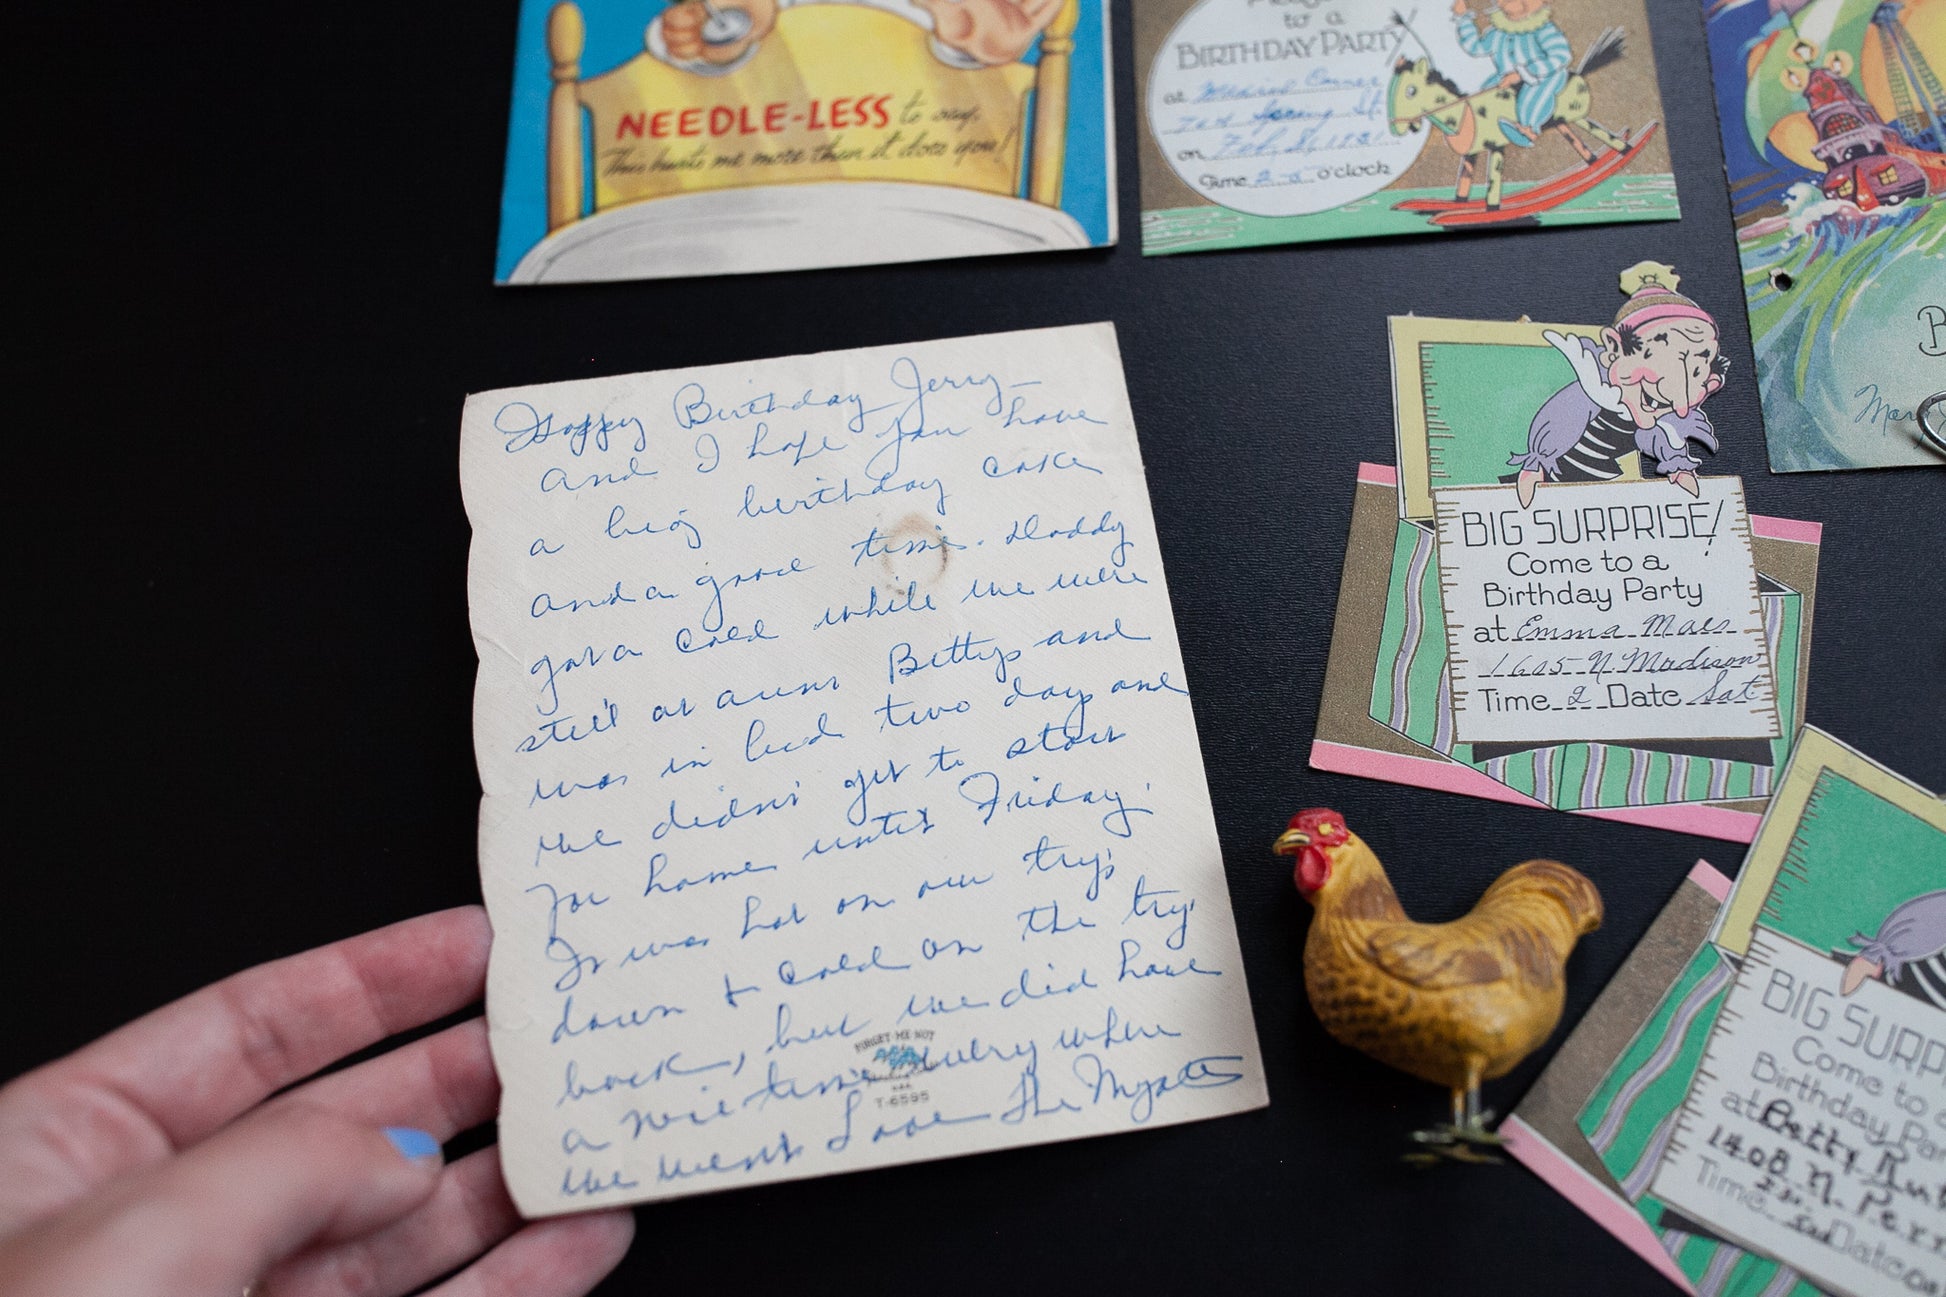 NEEDLE-LESS to say,
This hurts me more than it does you!
to a
BIRTHDAY PARTY
at
Spring St.
on Feb.
Time 2-5 o'clock
Happy Birthday Jerry—
and I hope you have
a big birthday cake
and a good time. Daddy
got a cold while we were
still at aunt Bettys and
was in bed two days and
we didn't get to start
for home until Friday.
It was hot on our trip
down & cold on the trip
back, but we did have
a nice time every where
we went Love The
FORGET-ME-NOT
T-6595
BIG SURPRISE!
Come to a
Birthday Party
at Emma Maes
1605 N. Madison
Time 2 Date Sat
B
Mary
BIG SURP
Come to a
Birthday Par
at Betty
1408 N. Per
Time Date